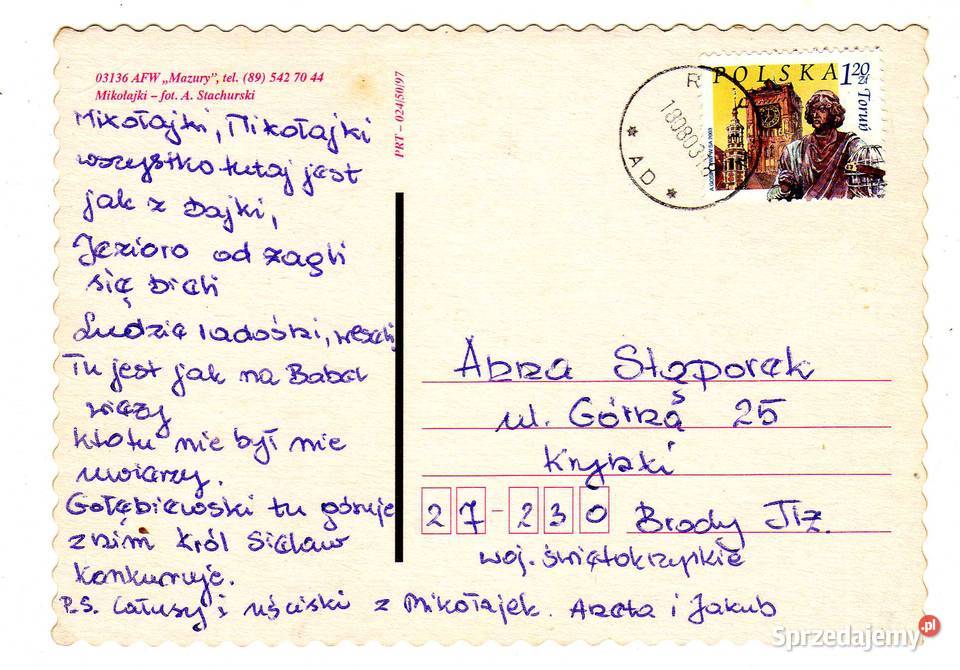 03136 AFW „Mazury”, tel. (89) 542 70 44
Mikołajki – fot. A. Stachurski
PRT – 024/50/97
Mikołajki, Mikołajki
wszystko tutaj jest
jak z Bajki,
Jezioro od żagli
się bieli
Ludzie radośni, weseli
Tu jest jak na Babel
wieży
kto tu nie był nie
uwierzy.
Gołębiewski tu góruje
z nim Król Sielaw
konkuruje.
P.S. Całusy i uściski z Mikołajek. Aneta i Jakub
POLSKA 1,20 zł
Toruń
R
180803
AD
Stąporek
ul. Górna 25
Krynki
27-230 Brody Iłż.
woj. świętokrzyskie
Sprzedajemy.pl